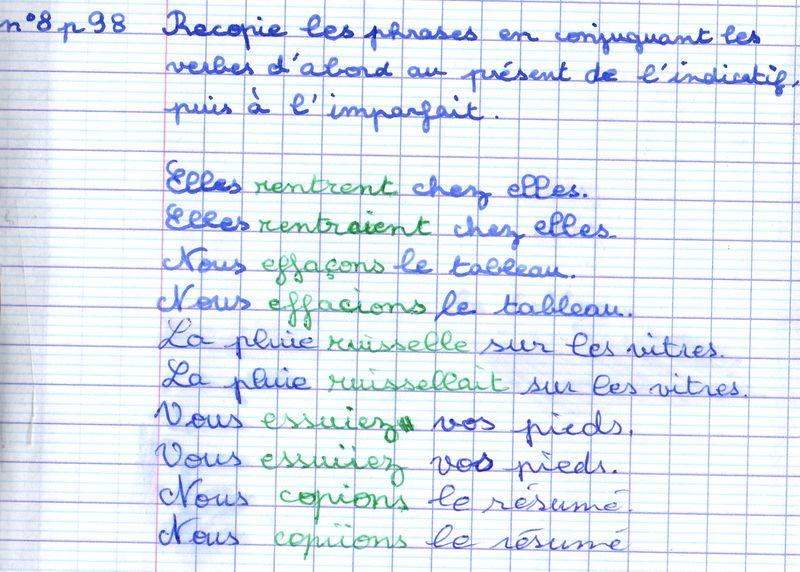 n°8 p 98 Recopie les phrases en conjuguant les
verbes d'abord au présent de l'indicatif,
puis à l'imparfait.
Elles rentrent chez elles.
Elles rentraient chez elles.
Nous effaçons le tableau.
Nous effacions le tableau.
La pluie ruisselle sur les vitres.
La pluie ruissellait sur les vitres.
Vous essuiez vos pieds.
Vous essuiiez vos pieds.
Nous copions le résumé.
Nous copiions le résumé